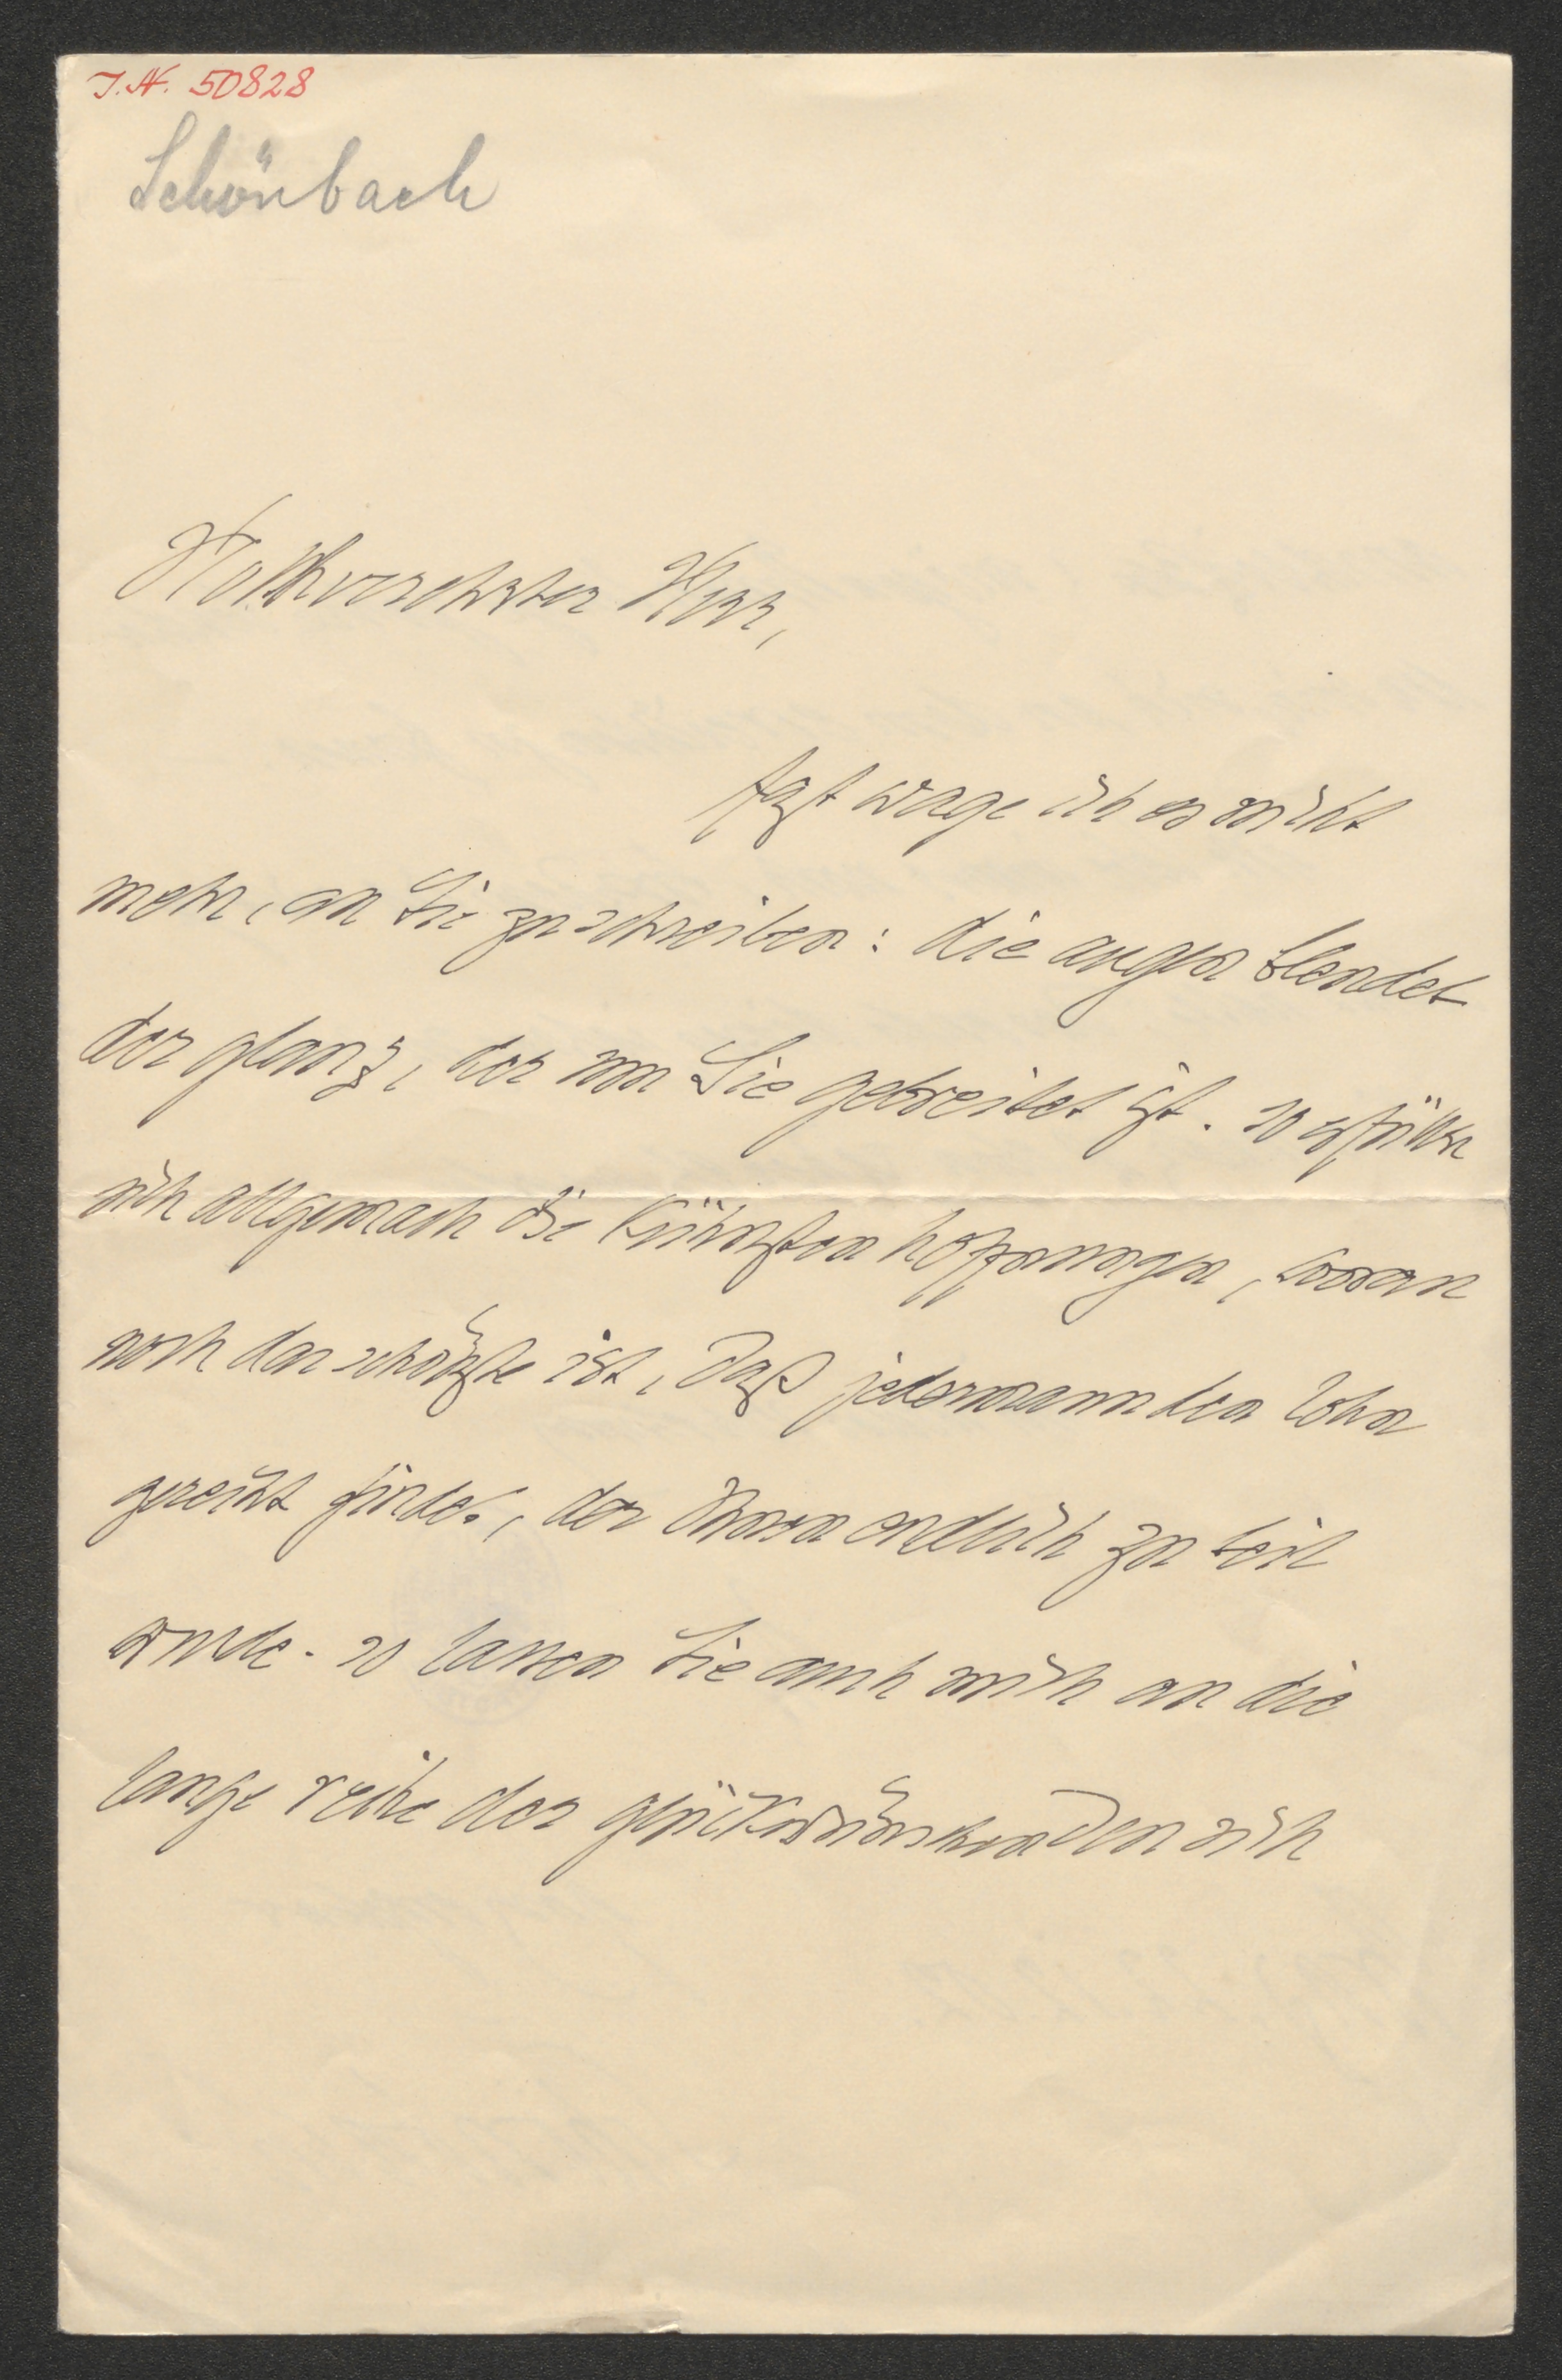 I. N. 50828
Schönbach
Hochverehrter Herr,
fast wage ich es nicht
mehr, an Sie zu schreiben: die augen blendet
der glanz, der um Sie gebreitet ist. so erfüllen
sich allgemach die kühnsten hoffnungen, woran
noch das schönste ist, daß jedermann den lohn
gerecht findet, der Ihnen endlich zu teil
wurde. so lassen Sie auch mich an die
lange reihe der glückwünschenden mich